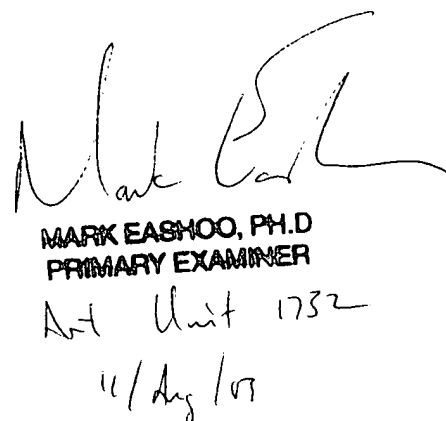 Mark Eashoo
MARK EASHOO, PH.D
PRIMARY EXAMINER
Art Unit 1732
11/Aug/03